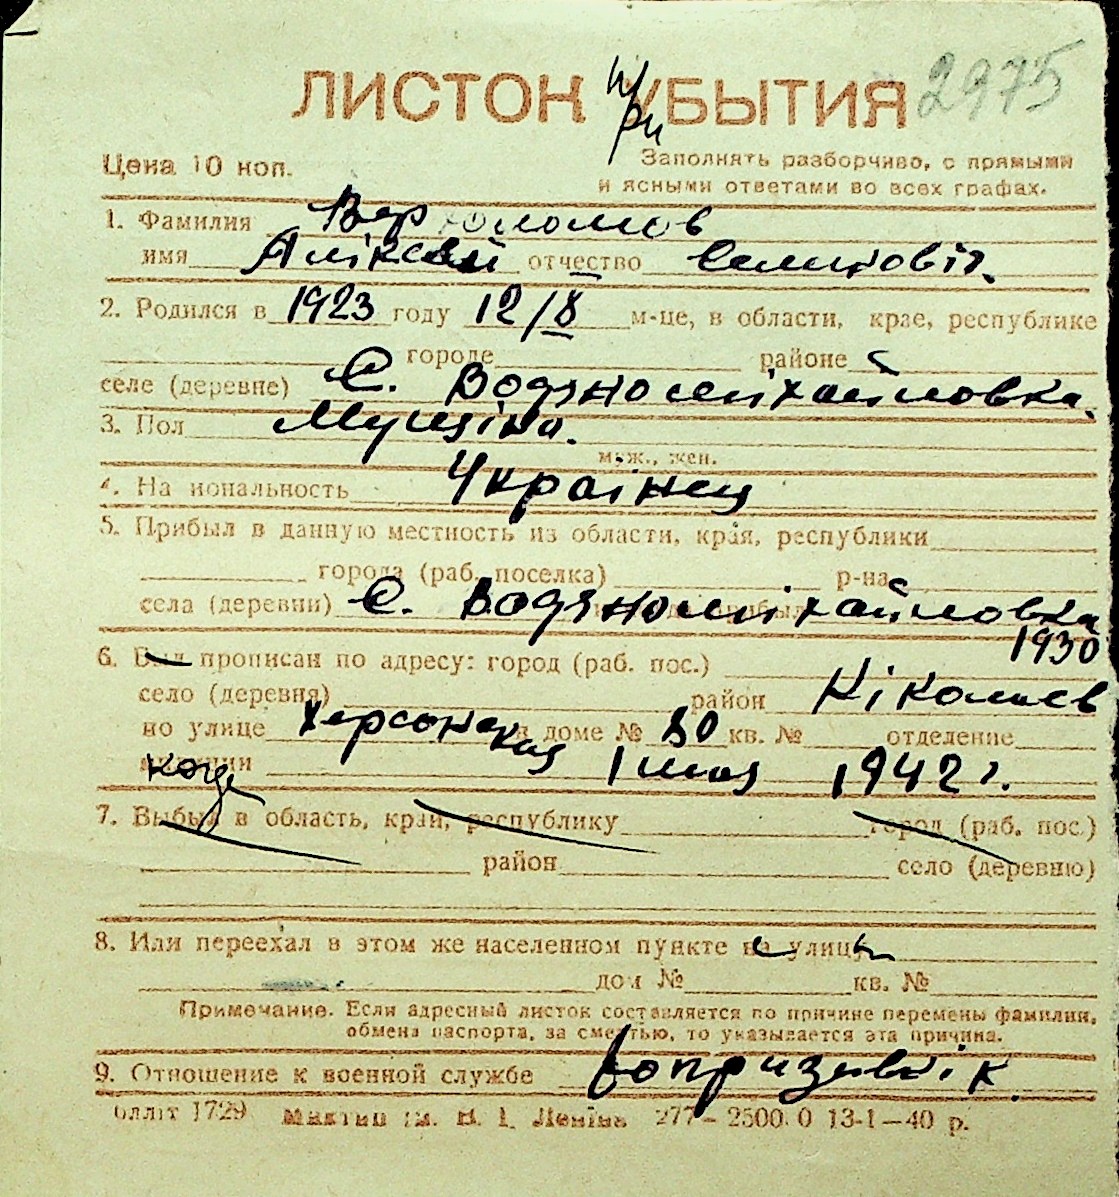 2975
ЛИСТОК УБЫТИЯ
При
Цена 10 коп.
Заполнять разборчиво, с прямыми
и ясными ответами во всех графах.
1. Фамилия Вархоломов
имя Аліксей отчество Семеновіч.
2. Родился в 1923 году 12/8 м-це, в области, крае, республике
городе районе
селе (деревне) С. Водяноміхайловка.
3. Пол Мущіна.
муж., жен.
4. Национальность Українец
5. Прибыл в данную местность из области, края, республики
города (раб. поселка) р-на
села (деревни) С. Водяноміхайловка
1930
6. Был прописан по адресу: город (раб. пос.)
село (деревня) район Ніколаев
по улице Херсонская в доме № 80 кв. № отделение
милиции 1 мая 1942 г.
7. Выбыл в область, край, республику город (раб. пос.)
район село (деревню)
8. Или переехал в этом же населенном пункте на улицу
дом № кв. №
Примечание. Если адресный листок составляется по причине перемены фамилии,
обмена паспорта, за смертью, то указывается эта причина.
9. Отношение к военной службе допризивнік
1729 ім. В. І. Леніна 277–2500.0 13-1–40 р.